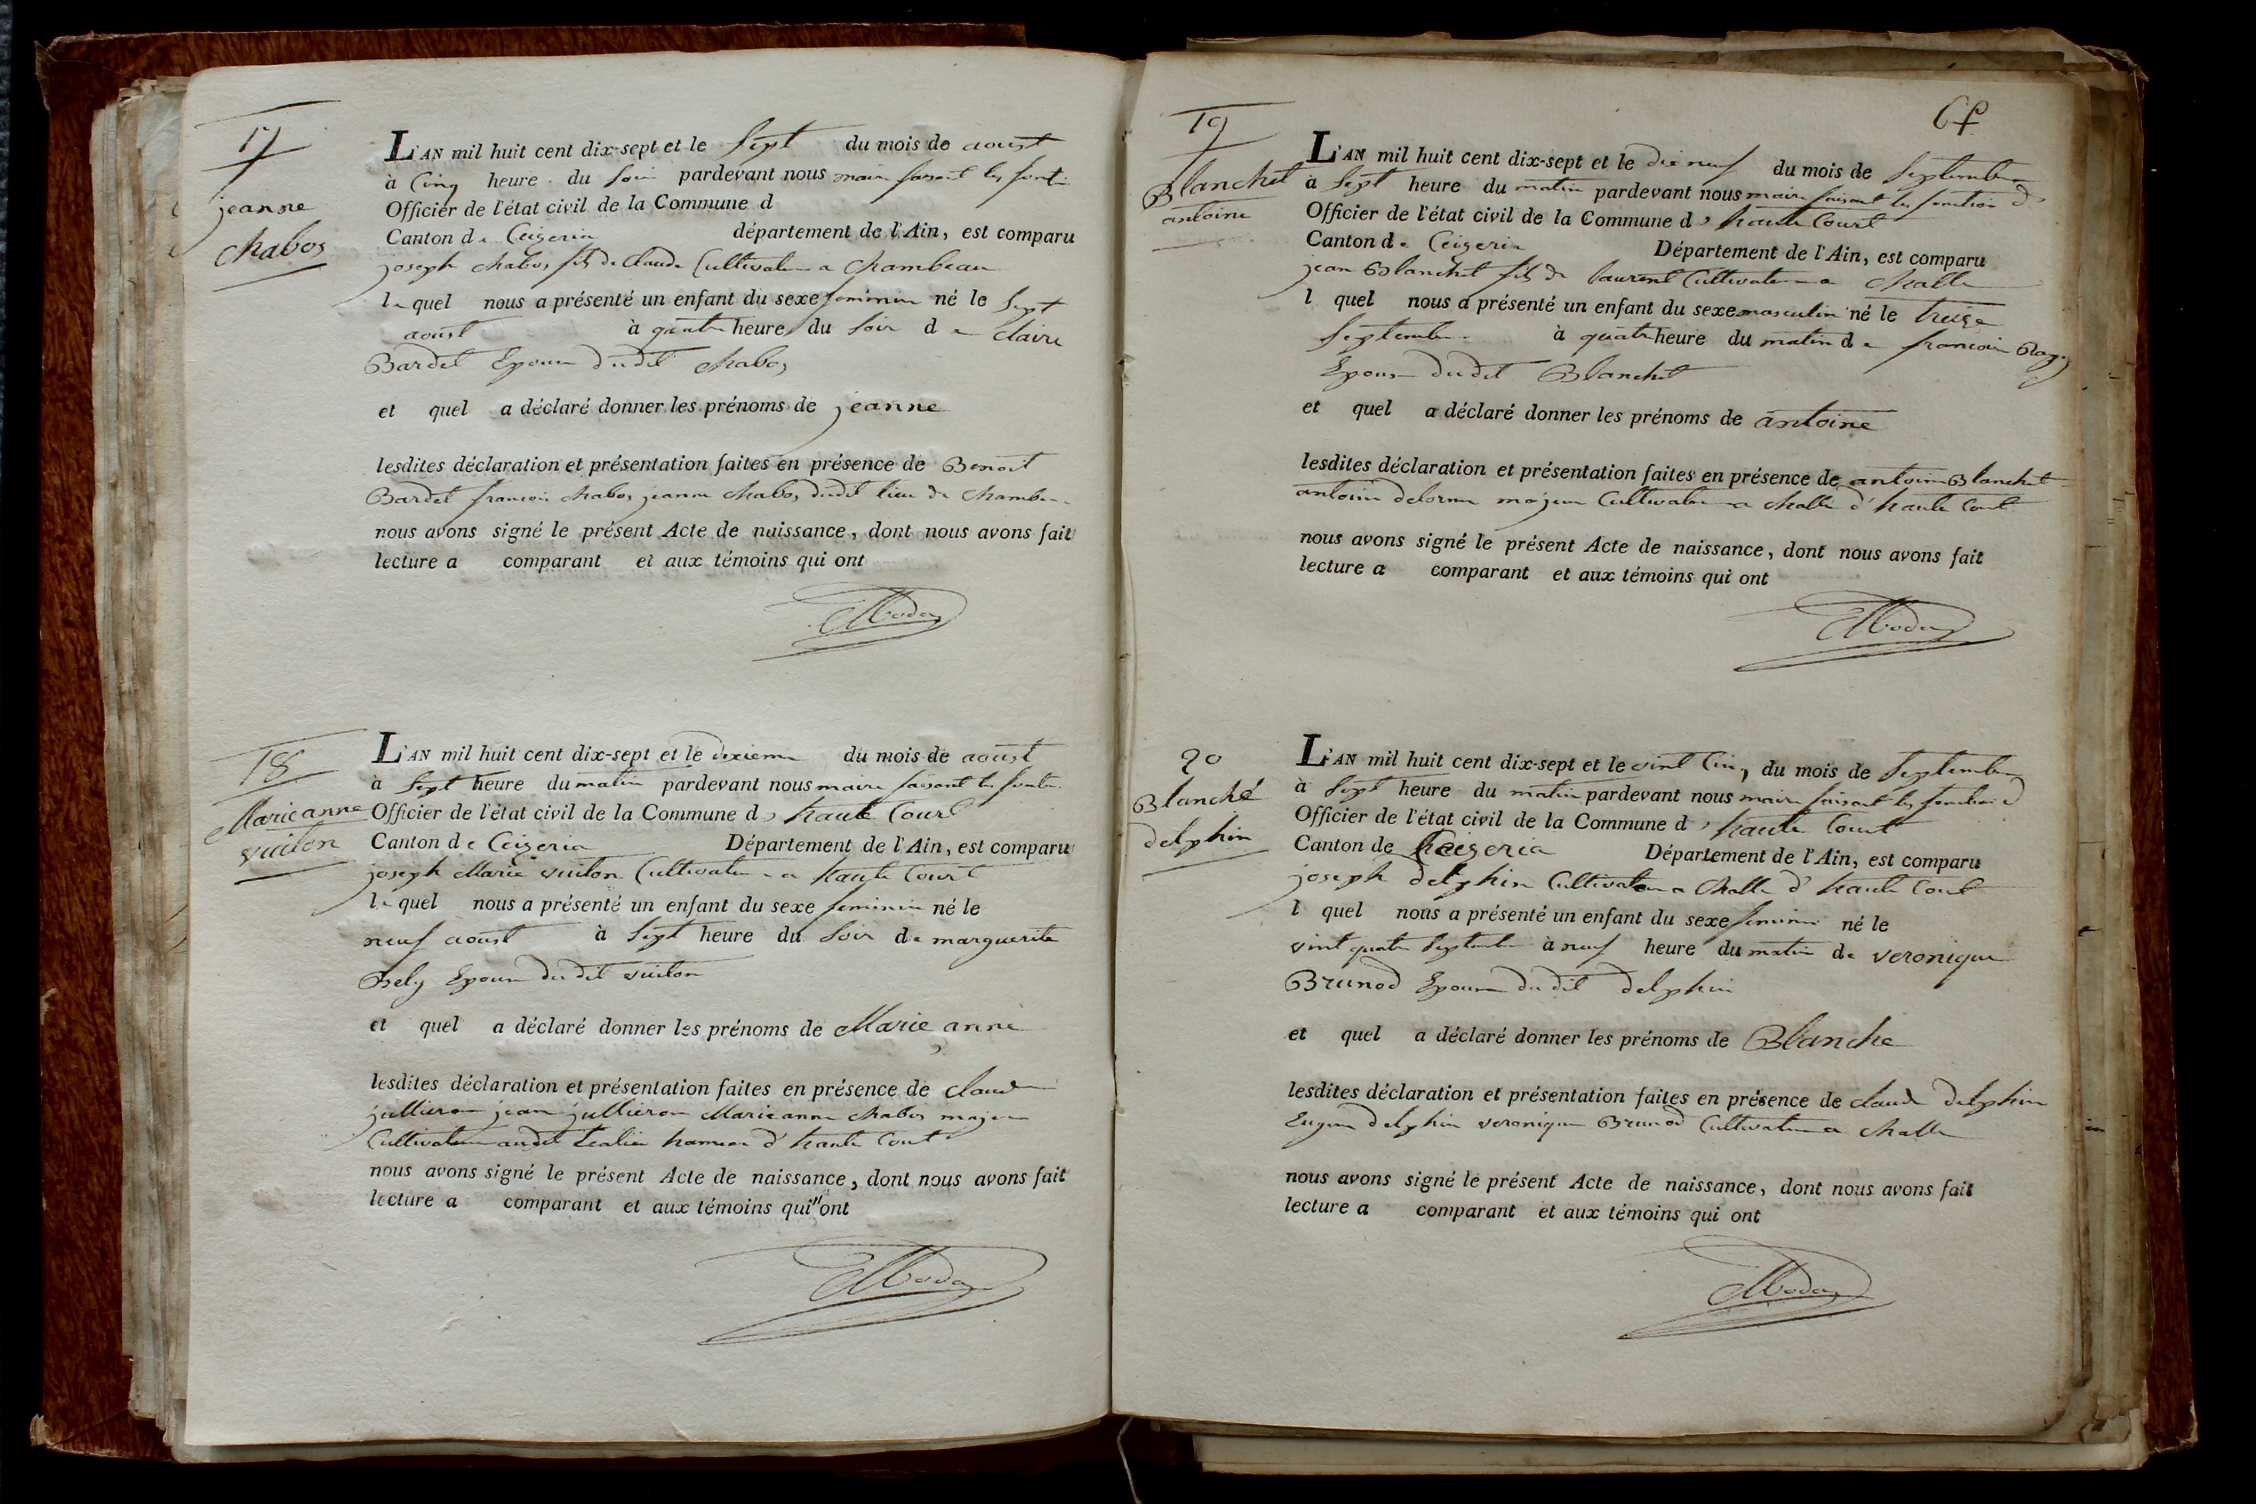 17
jeanne
chabos
L'AN mil huit cent dix-sept et le Sept du mois de aoust
à Cinq heure du Soir pardevant nous maire faisant les
Officier de l'état civil de la Commune d
Canton de Ceizeria département de l'Ain, est comparu
joseph chabos fils de Claude Cultivateur a Chambeau
le quel nous a présenté un enfant du sexe feminin né le Sept
aoust à quatre heure du Soir de claire
Bardet Epouse dudit chabos
et quel a déclaré donner les prénoms de jeanne
lesdites déclaration et présentation faites en présence de Benoit
Bardet francois chabos jeanne chabos dudit lieu de
nous avons signé le présent Acte de naissance, dont nous avons fait
lecture a comparant et aux témoins qui ont
18
Marie anne
vuiton
L'AN mil huit cent dix-sept et le dixieme du mois de aoust
à Sept heure du matin pardevant nous maire faisant les
Officier de l'état civil de la Commune d haute Court
Canton de Ceizeria Département de l'Ain, est comparu
joseph Marie vuiton Cultivateur a haute Court
le quel nous a présenté un enfant du sexe feminin né le
neuf aoust à Sept heure du Soir de marguerite
Bely Epouse du dit vuiton
et quel a déclaré donner les prénoms de Marie anne
lesdites déclaration et présentation faites en présence de claude
jean Marie anne chabos majeur
Cultivateur audit d'haute Court
nous avons signé le présent Acte de naissance, dont nous avons fait
lecture a comparant et aux témoins qui ont
19
Blanchet
antoine
L'AN mil huit cent dix-sept et le dix neuf du mois de Septembre
à Sept heure du matin pardevant nous maire faisant les fonction d
Officier de l'état civil de la Commune d haute Court
Canton de Ceizeria Département de l'Ain, est comparu
jean Blanchet fils de laurent Cultivateur a challe
l quel nous a présenté un enfant du sexe masculin né le treize
Septembre à quatre heure du matin de francoise
Epouse dudit Blanchet
et quel a déclaré donner les prénoms de antoine
lesdites déclaration et présentation faites en présence de antoine Blanchet
antoine delorme majeur Cultivateur a challe d'haute Court
nous avons signé le présent Acte de naissance, dont nous avons fait
lecture a comparant et aux témoins qui ont
20
Blanché
delphin
L'AN mil huit cent dix-sept et le vint Cinq du mois de Septembre
à Sept heure du matin pardevant nous maire faisant les fonction d
Officier de l'état civil de la Commune d haute Court
Canton de Ceizeria Département de l'Ain, est comparu
joseph delphin Cultivateur a challe d'haute Court
l quel nous a présenté un enfant du sexe feminin né le
vint quatre Septembre à neuf heure du matin de veronique
Brunod Epouse du dit delphin
et quel a déclaré donner les prénoms de Blanche
lesdites déclaration et présentation faites en présence de claude delphin
Eugene delphin veronique Brunod Cultivateur a challe
nous avons signé le présent Acte de naissance, dont nous avons fait
lecture a comparant et aux témoins qui ont